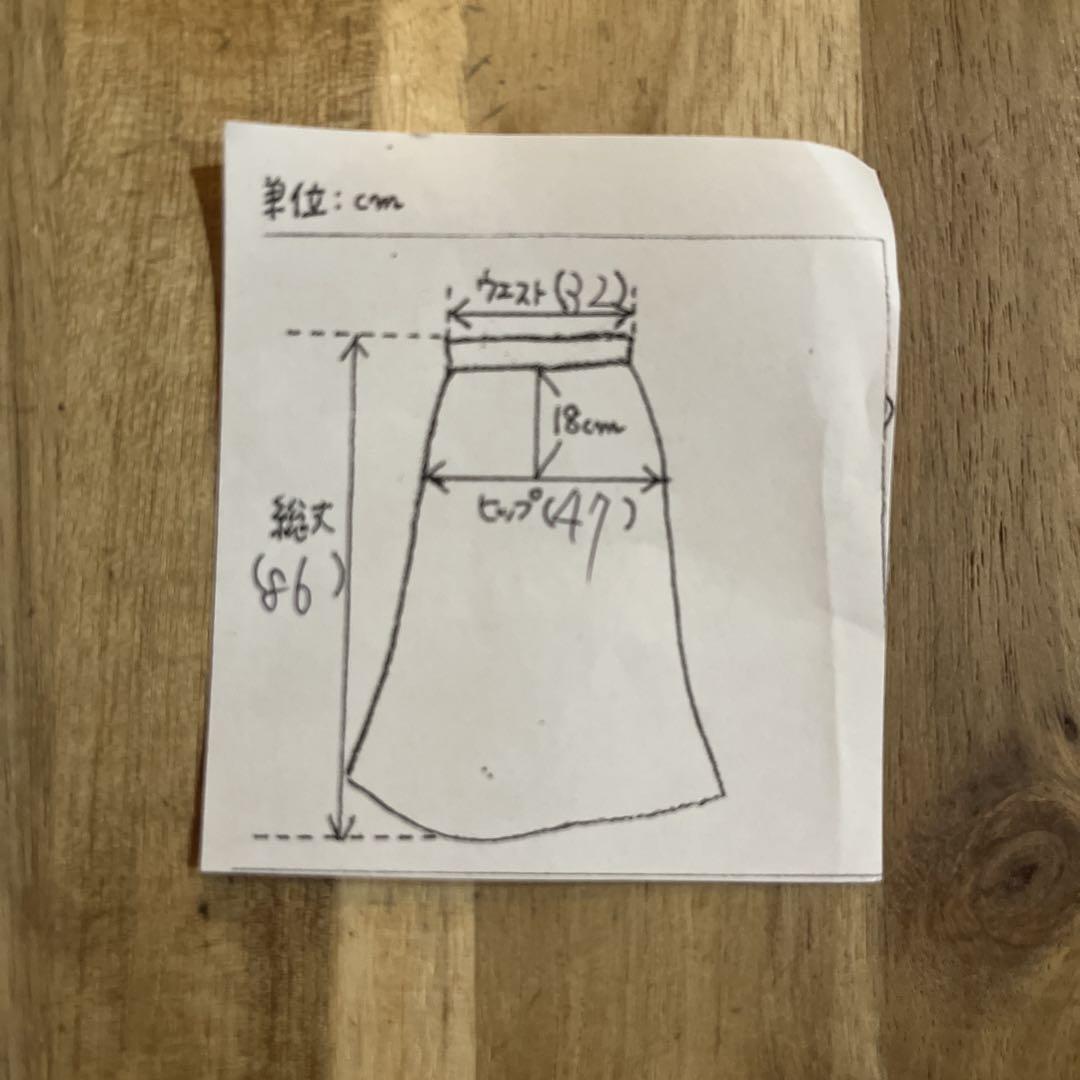 単位:cm
ウエスト(32)
18cm
ヒップ(47)
総丈
(86)